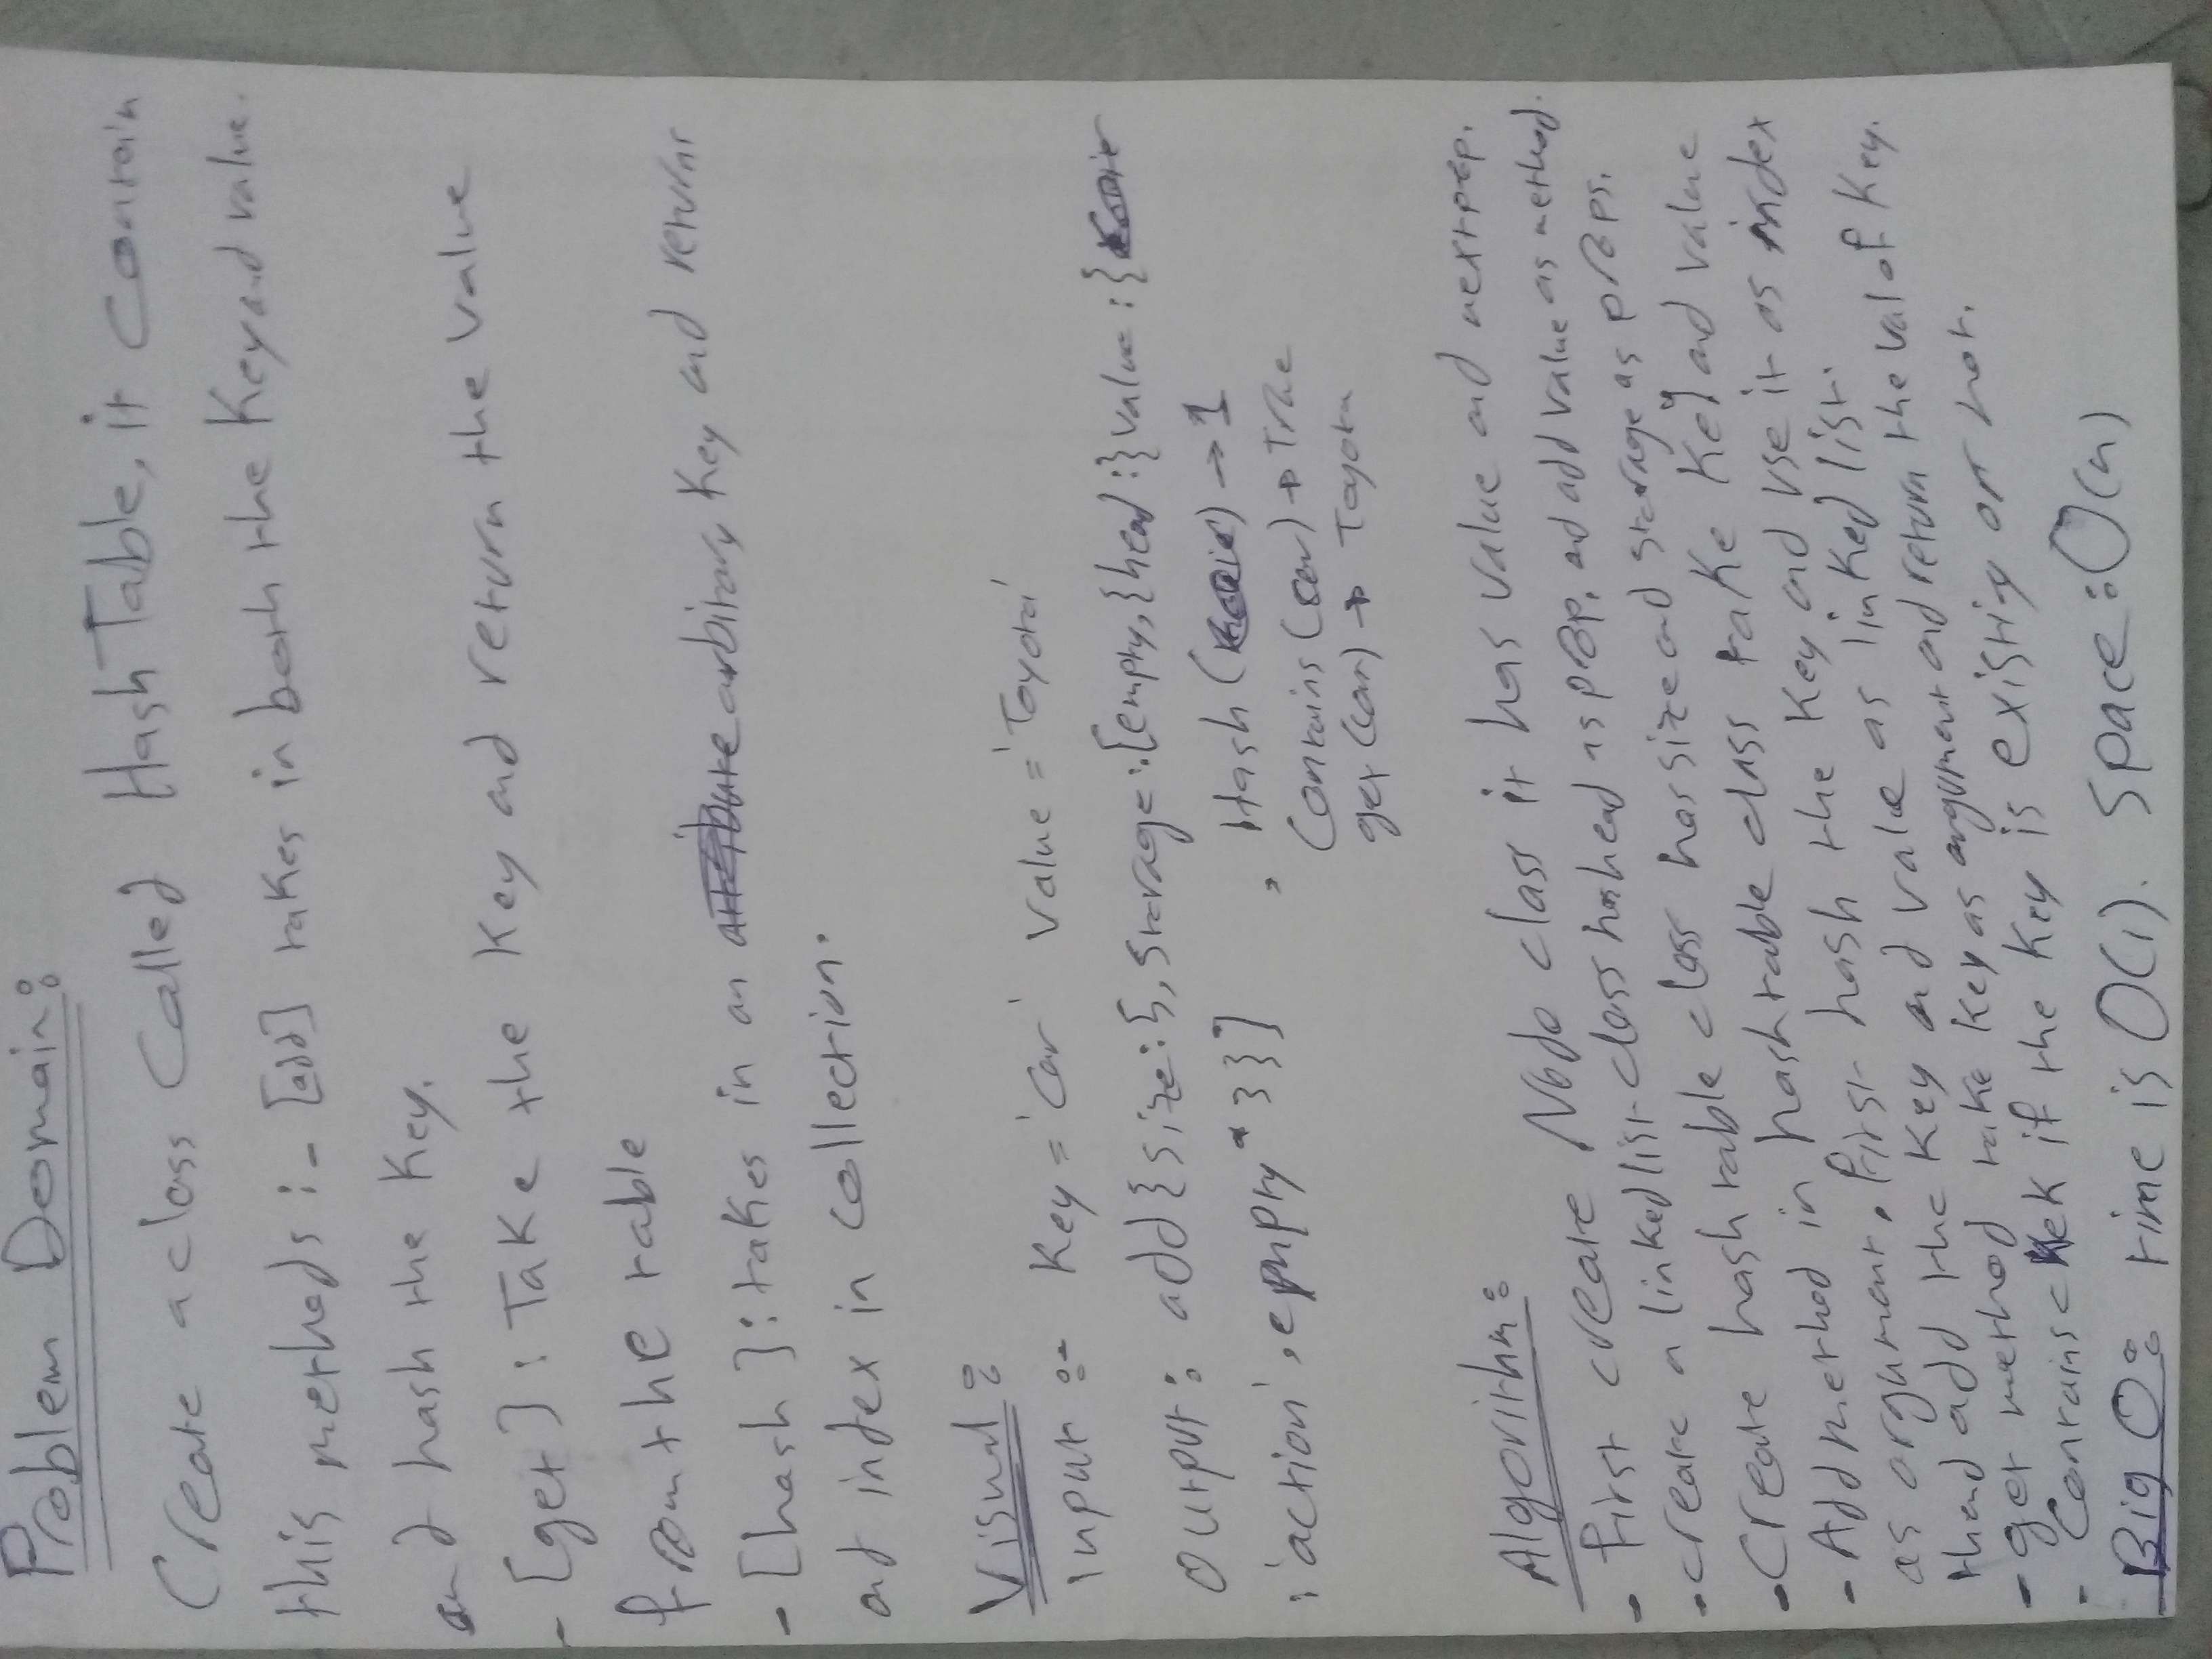 Problem Domain:
Create a class Called Hash Table, it contain
this methods :- [add] takes in both the Key and value.
and hash the Key.
- [get] : Take the Key and return the value
from the table
- [hash] : takes in an arbitary Key and returns
and index in collection.
Visual :
input :- Key = 'Car' Value = 'Toyota'
Output : add {size:5, Storage:[empty, {head:} value : {
: 'action', empty * 3}}] , Hash ( ) → 1
Contains (car) → True
get (car) → Toyota
Algorithm :
- first create Node class it has value and next prop.
- create a linked list class has head as prop. and add value as method.
- Create hash table class has size and storage as props.
- Add method in hashtable class take Key and value
as argument. first hash the Key and use it as index
thend add the Key and value as linked list.
- get method take Key as argument and return the val of Key.
- Contains chek if the Key is existing or not.
Big O : time is O(1). Space : O(n)